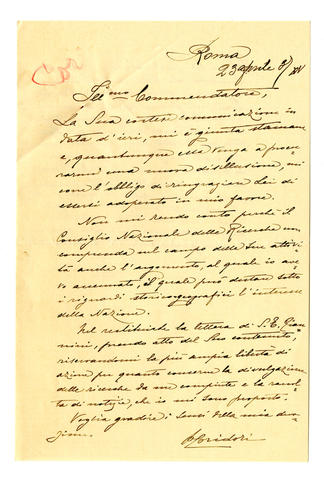 Roma
23 aprile 8/XV
Cori
Ill.mo Commendatore,
La Sua cortese comunicazione in
data d'ieri, mi è giunta stamane
e, quantunque essa venga a procu-
rarmi una nuova disillusione, mi
corre l'obbligo di ringraziare Lei di
essersi adoperato in mio favore.
Non mi rendo conto perchè il
Consiglio Nazionale delle Ricerche non
comprenda nel campo delle Sue attivi-
tà anche l'argomento, al quale io ave-
vo accennato, il quale può destare sotto
i riguardi storico-geografici l'interesse
della Nazione.
Nel restituirle la lettera di S.E. Gian-
nini, prendo atto del Suo contenuto,
riserbandomi la più ampia libertà di
azione per quanto concerne la divulgazione
delle ricerche da me compiute e la raccol-
ta di notizie, che io mi sono proposto.
Voglia gradire i sensi della mia devo-
zione.